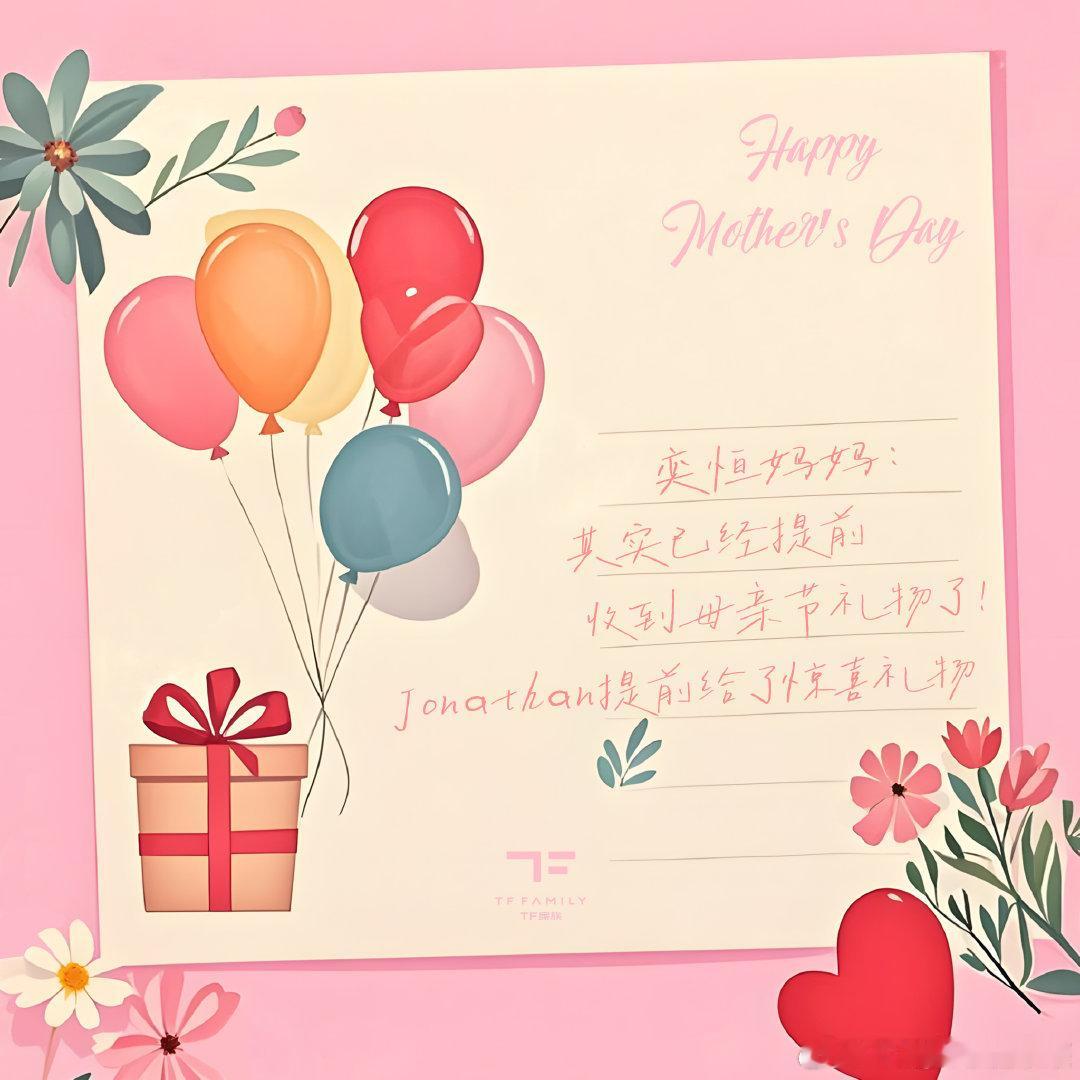 Happy
Mother's Day
奕恒妈妈:
其实已经提前
收到母亲节礼物了!
Jonathan提前给了惊喜礼物
TF FAMILY
TF家族